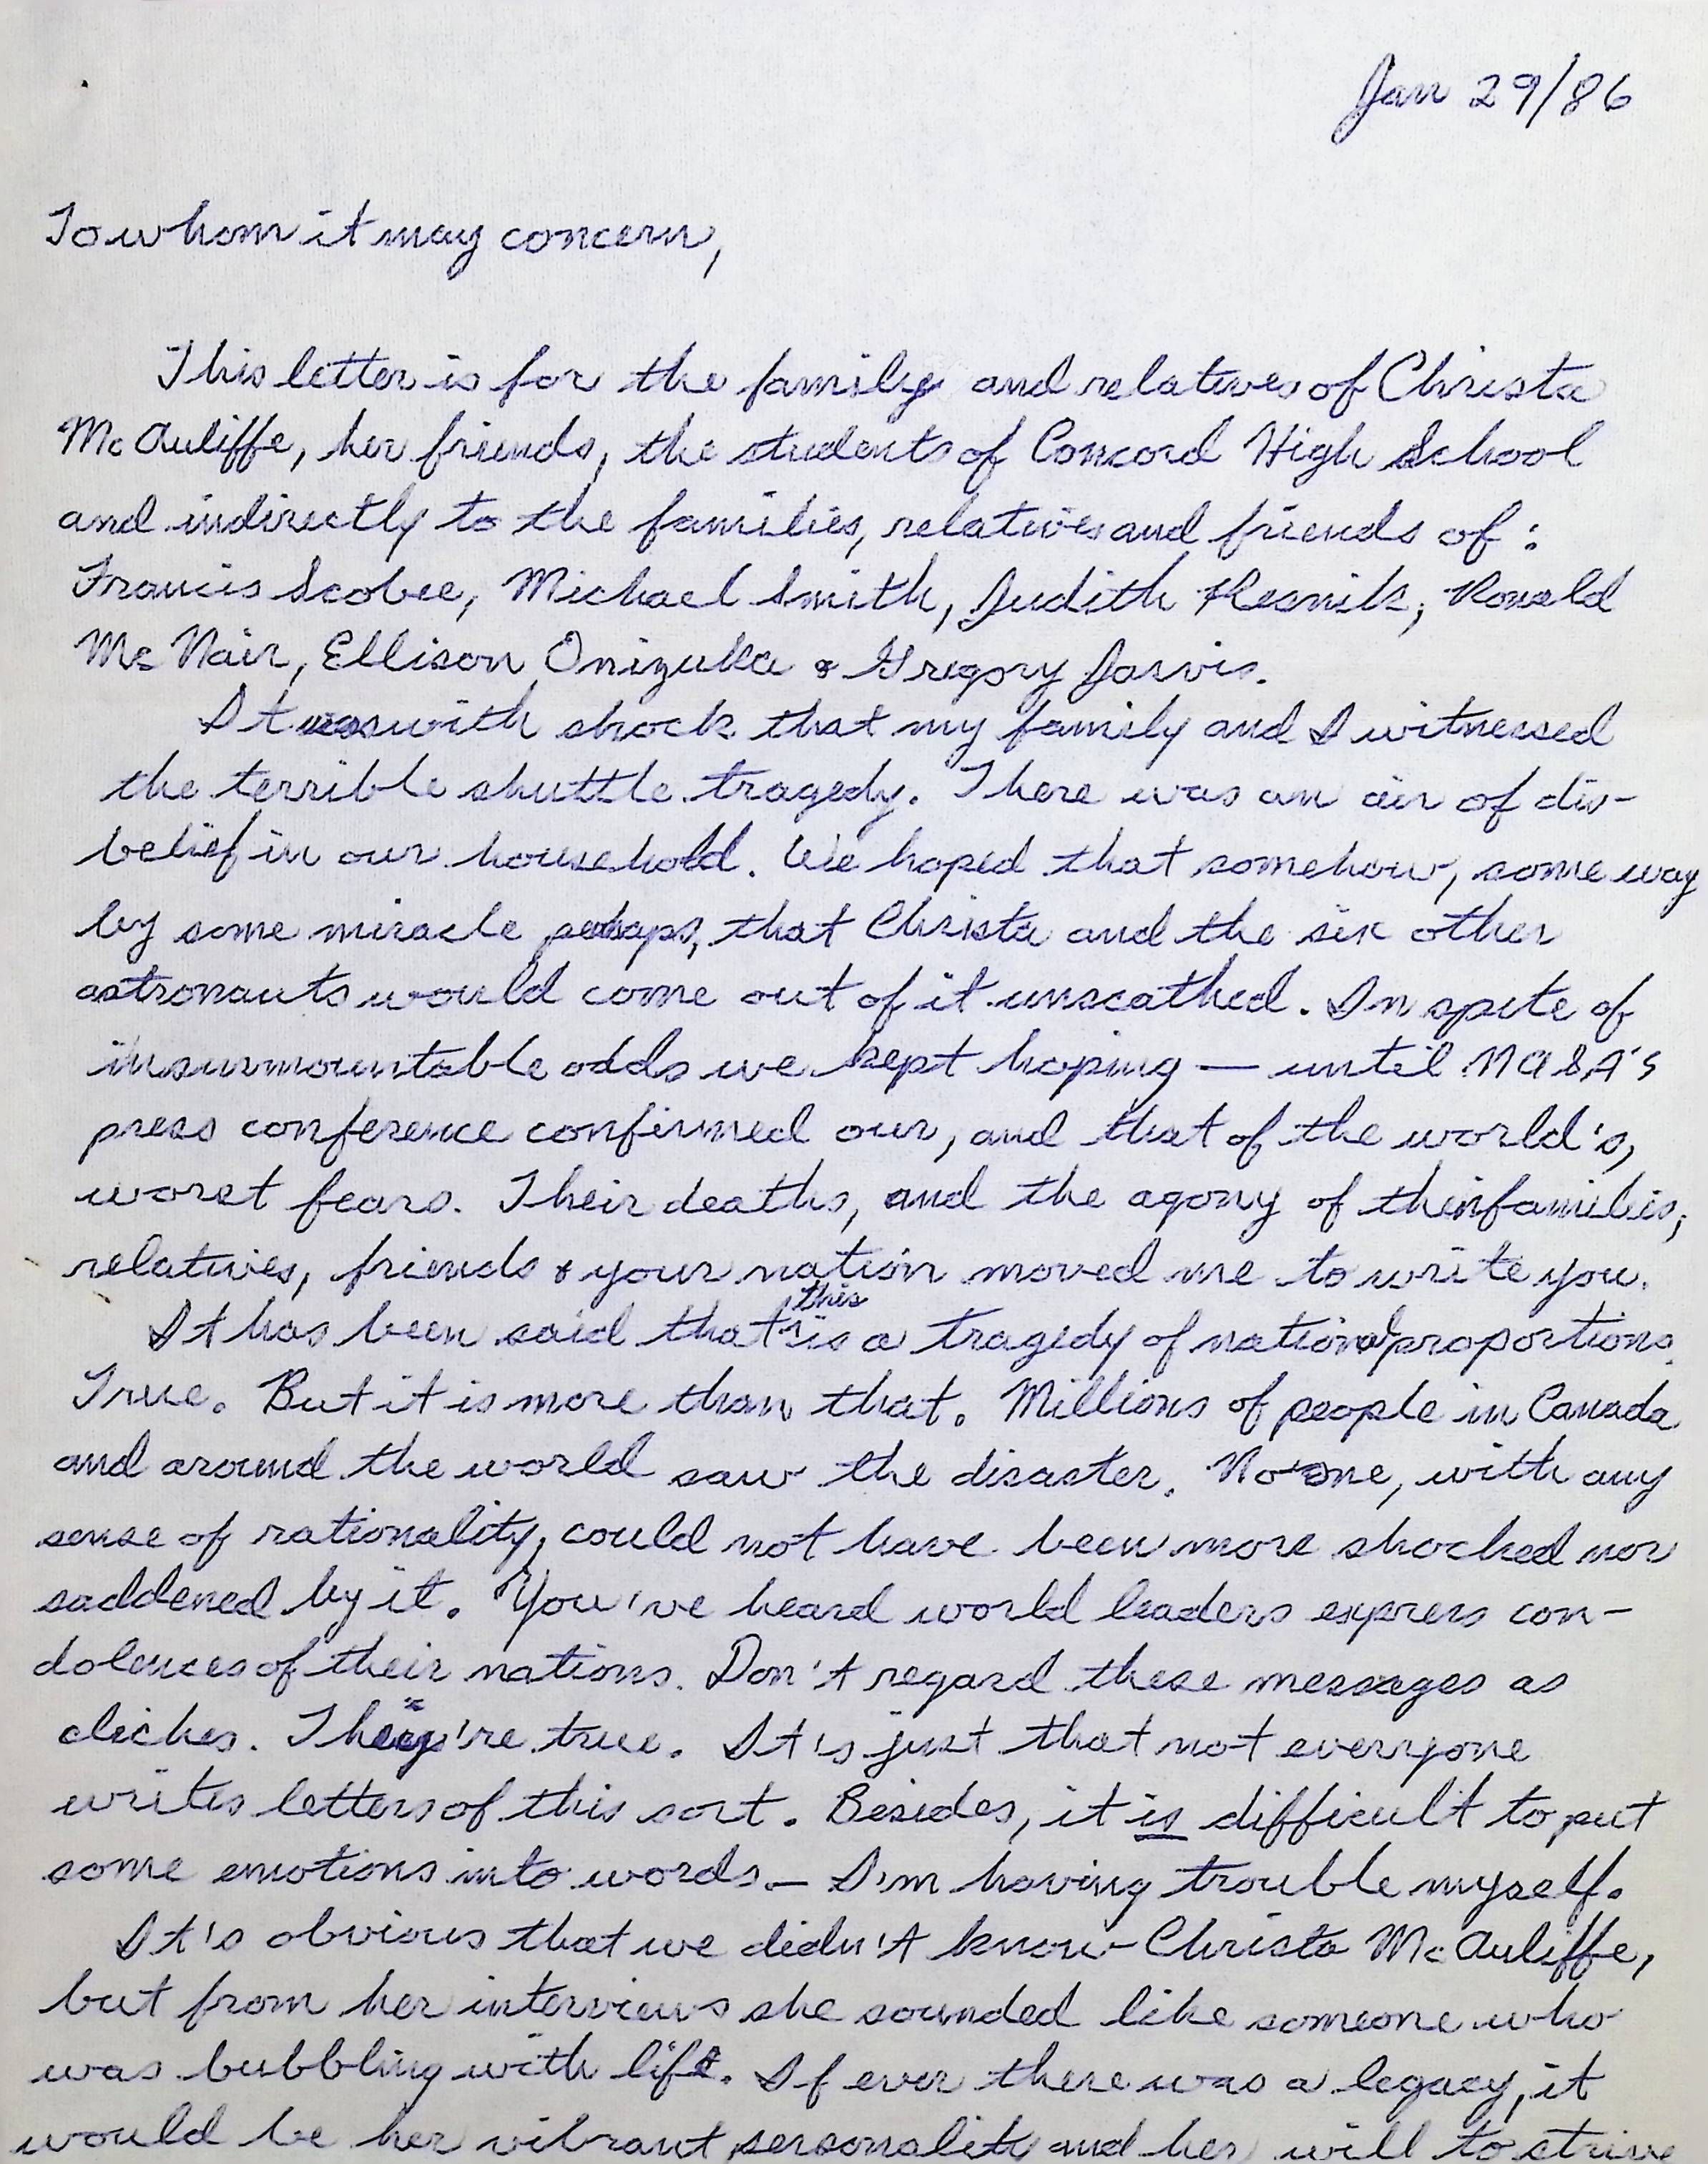 Jan 29/86
To whom it may concern,
This letter is for the family and relatives of Christa
McAuliffe, her friends, the students of Concord High School
and indirectly to the families, relatives and friends of:
Francis Scobee, Michael Smith, Judith Resnik, Ronald
McNair, Ellison Onizuka & Gregory Jarvis.
It was with shock that my family and I witnessed
the terrible shuttle tragedy. There was an air of dis-
belief in our household. We hoped that somehow, some way
by some miracle perhaps, that Christa and the six other
astronauts would come out of it unscathed. In spite of
insurmountable odds we kept hoping — until NASA's
press conference confirmed our, and that of the world's,
worst fears. Their deaths, and the agony of their families,
relatives, friends & your nation moved me to write you.
It has been said that this is a tragedy of national proportions.
True. But it is more than that. Millions of people in Canada
and around the world saw the disaster. No one, with any
sense of rationality, could not have been more shocked nor
saddened by it. You've heard world leaders express con-
dolences of their nations. Don't regard these messages as
cliches. They're true. It's just that not everyone
writes letters of this sort. Besides, it is difficult to put
some emotions into words — I'm having trouble myself.
It's obvious that we didn't know Christa McAuliffe,
but from her interviews she sounded like someone who
was bubbling with life. If ever there was a legacy, it
would be her vibrant personality and her will to strive